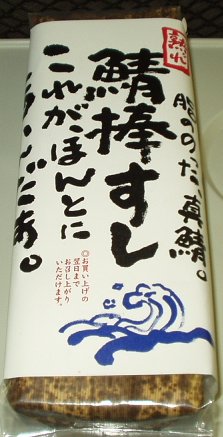 脂ののった、真鯖。
鯖棒すし
これがほんとに
うまいんだなあ。
◎お買い上げの
翌日まで
お召し上がり
いただけます。